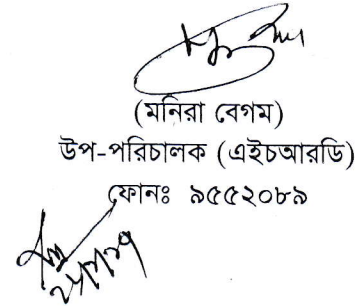 (মনিরা বেগম)
উপ-পরিচালক (এইচআরডি)
ফোনঃ ৯৫৫২০৮৯